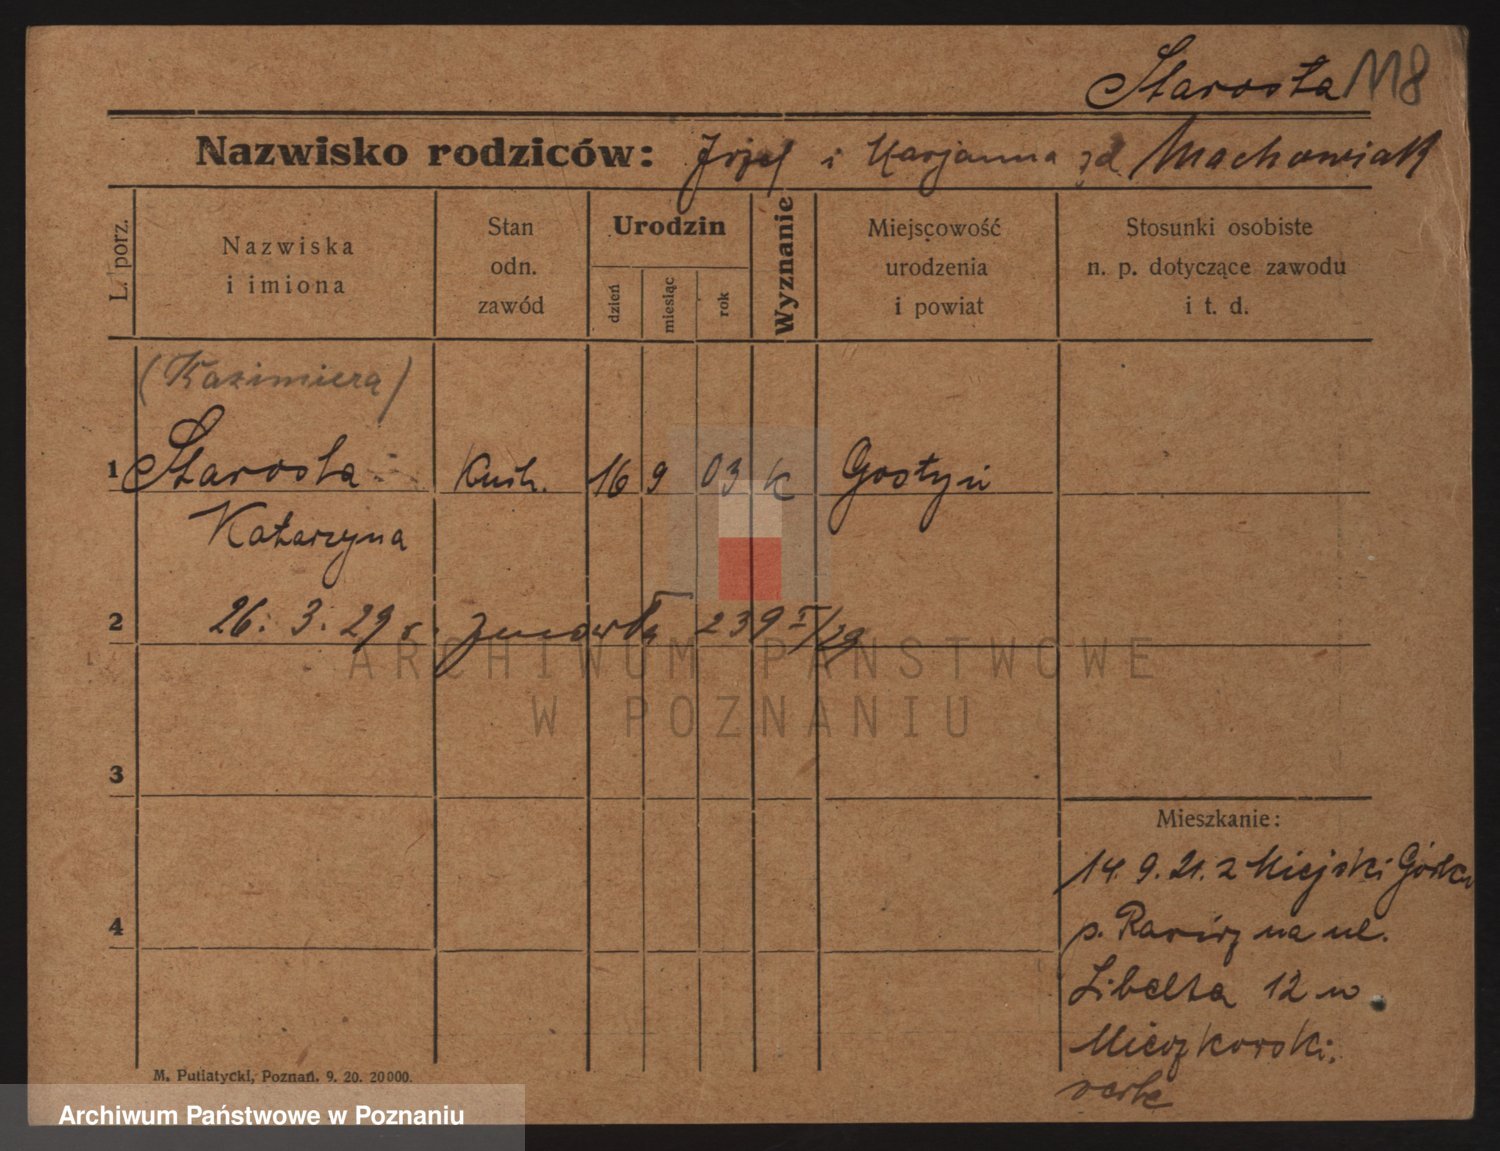 Starosta 118
Nazwisko rodziców: Józef i Marjanna zd Machowiak
L. porz.
Nazwiska
i imiona
Stan
odn.
zawód
Urodzin
dzień
miesiąc
rok
Wyznanie
Miejscowość
urodzenia
i powiat
Stosunki osobiste
n. p. dotyczące zawodu
i t. d.
(Kazimiera)
1 Starosta Kuch. 16 9 03 k Gostyń
Katarzyna
2 26. 3. 29 r. zmarła 239 I/29
3
Mieszkanie:
14. 9. 21. z Miejski Górka
4 p. Rawicz na ul.
Libelta 12 w
Mieczkowski.
verte
M. Putiatycki, Poznań. 9. 20. 20000.
ARCHIWUM PAŃSTWOWE
W POZNANIU
Archiwum Państwowe w Poznaniu